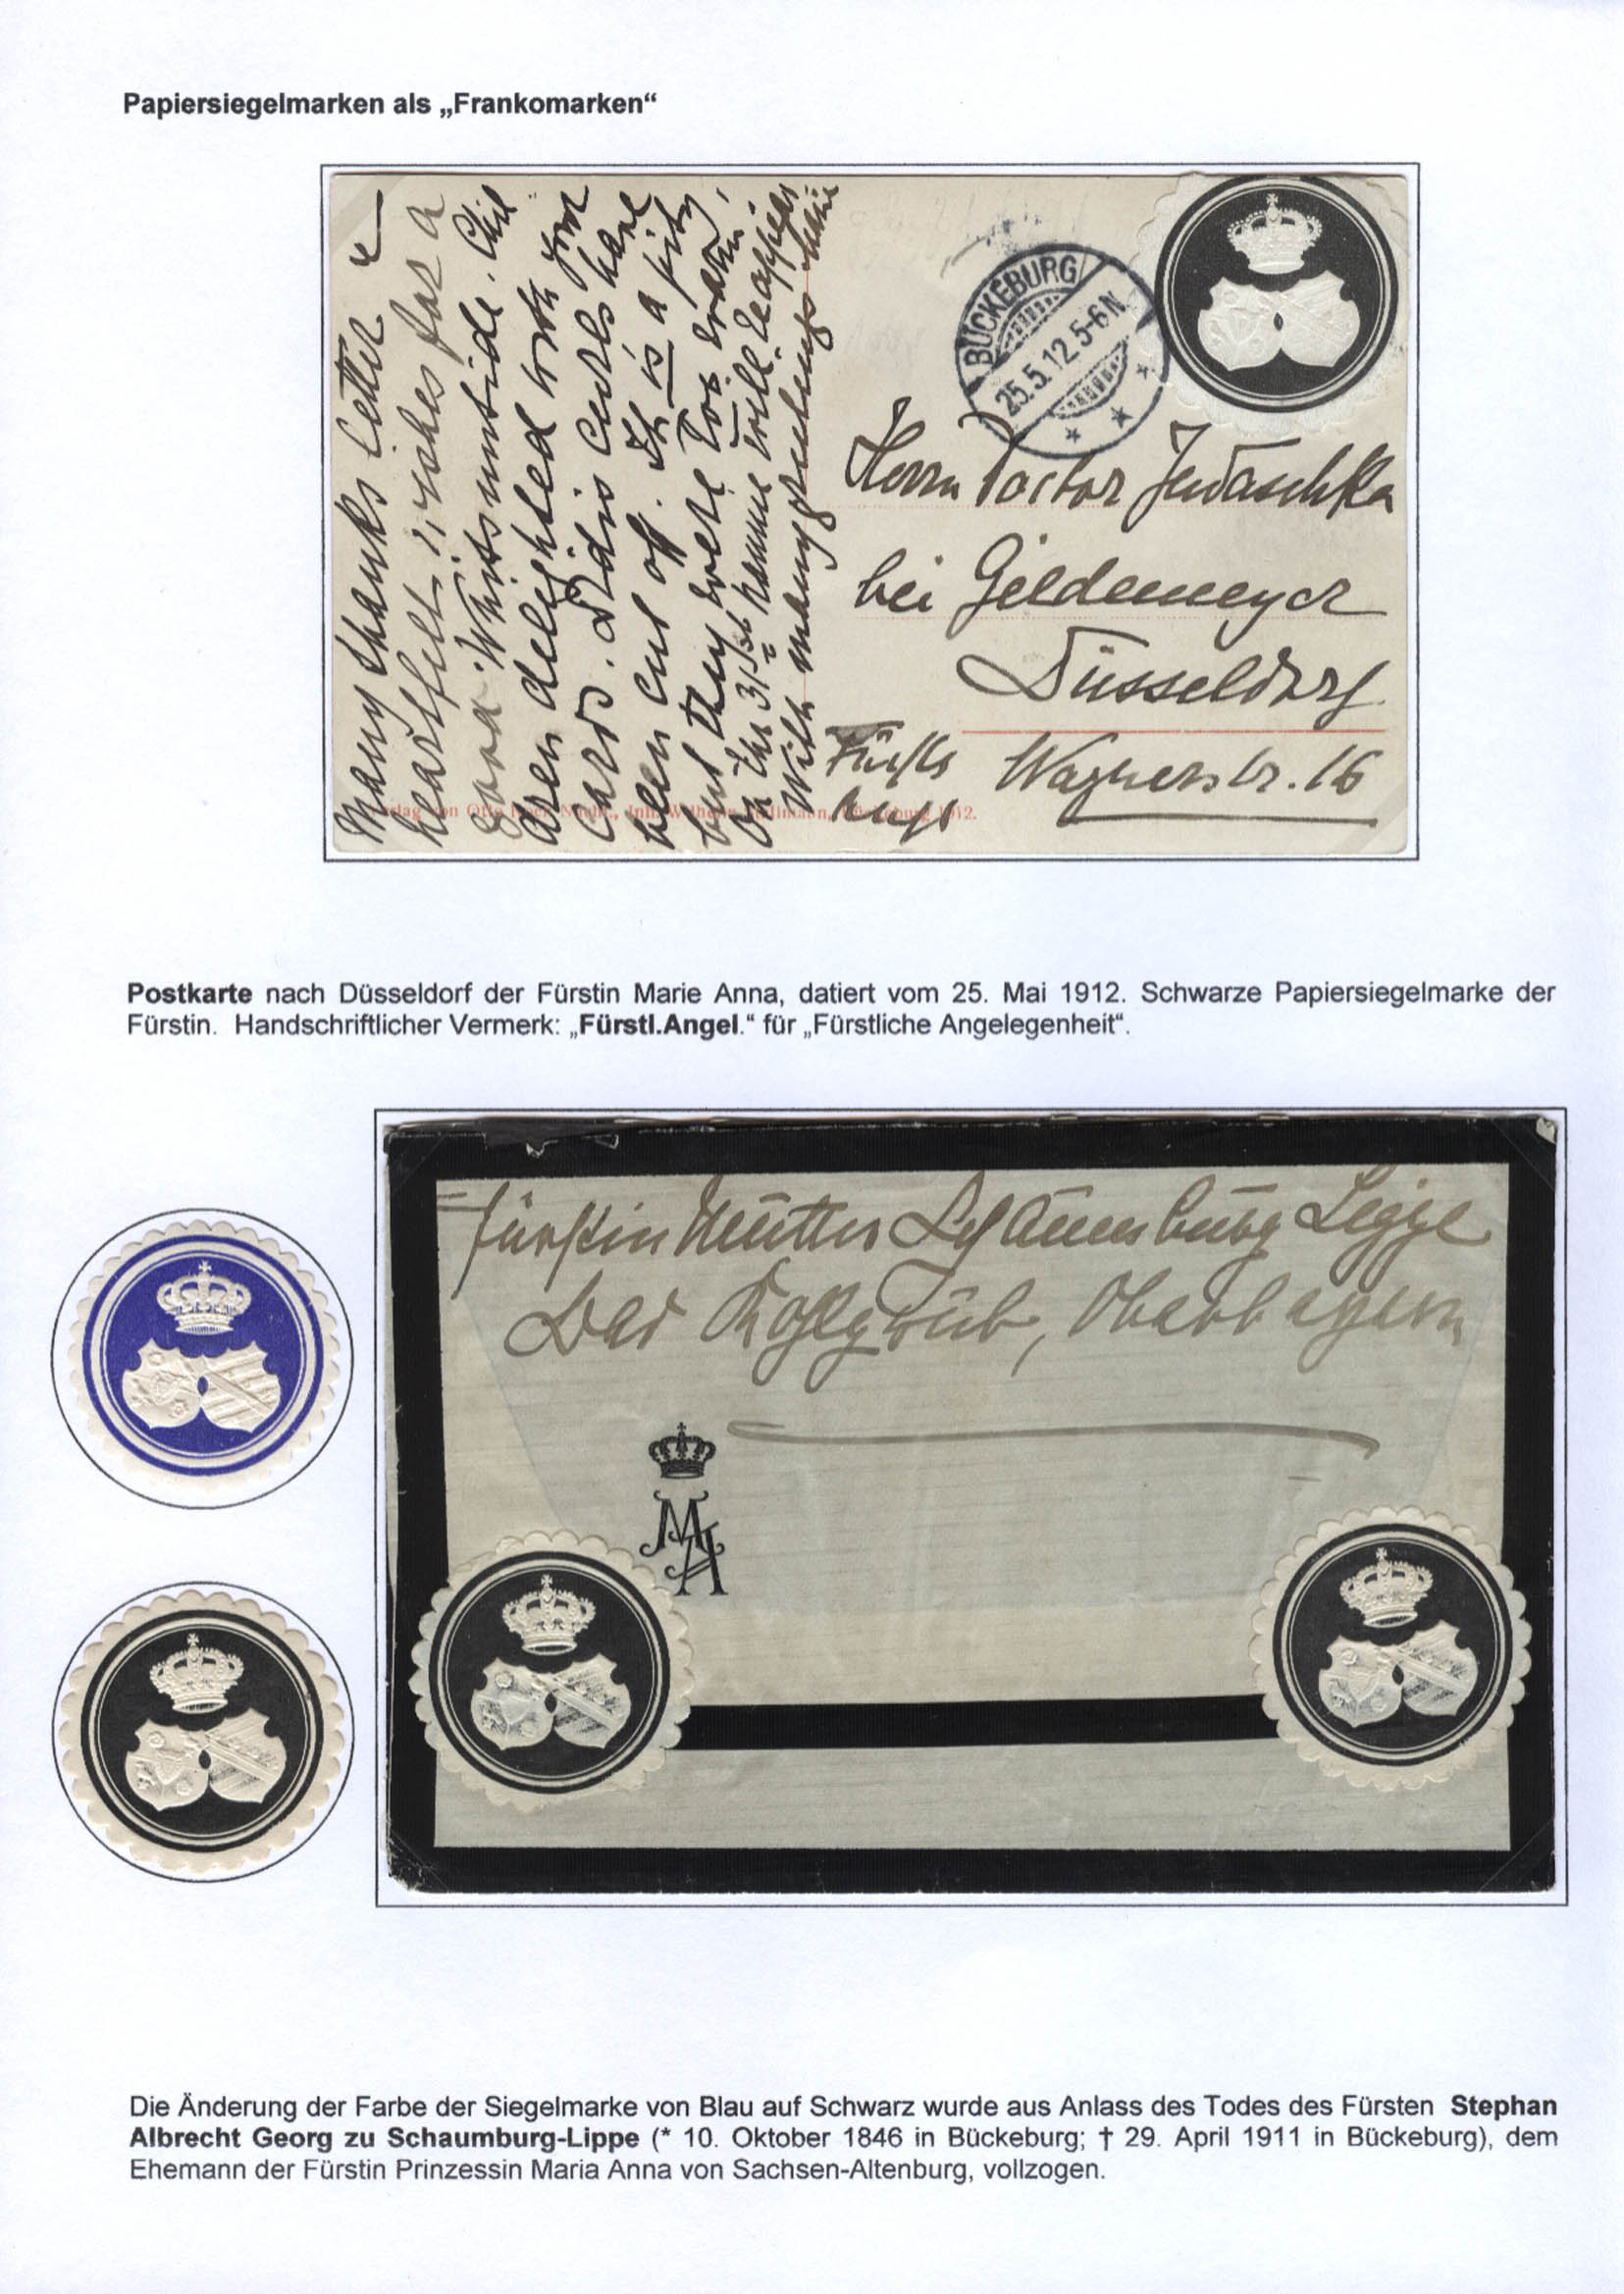 Papiersiegelmarken als „Frankomarken“
Many thanks letter &
heartfelt wishes for a
good Whitsuntide. Chil
dren delighted with your
cards. curls have
been cut off. It is a pity
but they were too warm.
On the 31st will be
With many greetings
BÜCKEBURG
25.5.12.5-6N.
Herrn Pastor
bei Geldemeyer
Düsseldorf
Wagnerstr. 16
Fürstl.
Angel.
Verlag von Otto Nachf., Inh. Wilhelm Bückeburg 1912.
Postkarte nach Düsseldorf der Fürstin Marie Anna, datiert vom 25. Mai 1912. Schwarze Papiersiegelmarke der
Fürstin. Handschriftlicher Vermerk: „Fürstl.Angel.“ für „Fürstliche Angelegenheit“.
Fürstin Mutter Schaumburg Lippe
Bad Kohlgrub, Oberbayern
MA
Die Änderung der Farbe der Siegelmarke von Blau auf Schwarz wurde aus Anlass des Todes des Fürsten Stephan
Albrecht Georg zu Schaumburg-Lippe (* 10. Oktober 1846 in Bückeburg; † 29. April 1911 in Bückeburg), dem
Ehemann der Fürstin Prinzessin Maria Anna von Sachsen-Altenburg, vollzogen.